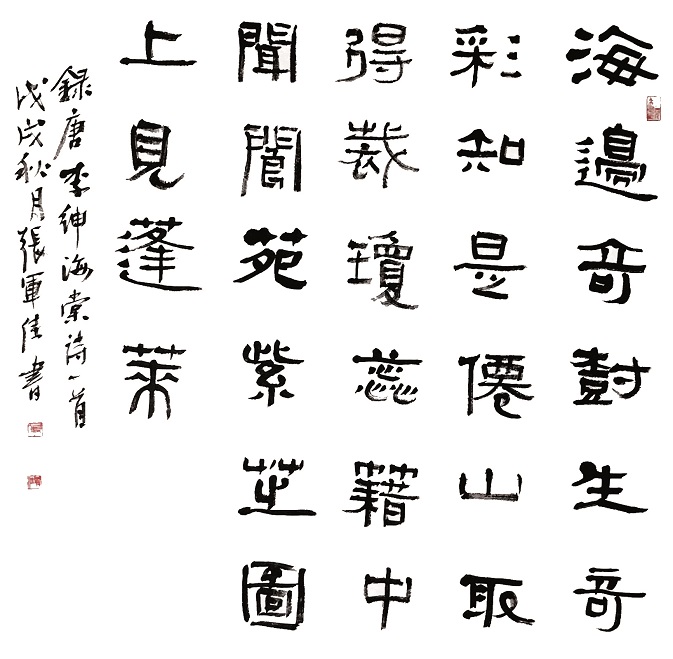 海邊奇尌生奇
彩知是僊山取
得栽瓊蕊籍中
聞閬苑紫芝圖
上見蓬萊
錄唐李紳海棠詩一首
戊戌秋月張軍佳書